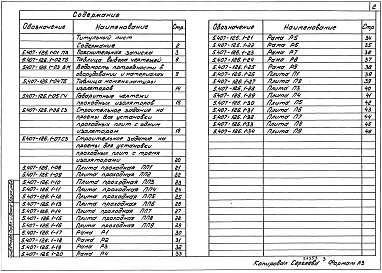 2
Содержание
Обозначение Наименование Стр
Титульный лист
Содержание 2
5.407-126.1-01 ПЗ Пояснительная записка 3
5.407-126.1-02 ТБ Таблица выбора чертежей 8
5.407-126.1-03 ВМ Ведомость потребности в
оборудовании и материалах 9
5.407-126.1-04 ТБ Таблица номенклатуры
изоляторов 14
5.407-126.1-05 ГЧ Габаритные чертежи
проходных изоляторов 18
5.407-126.1-06 СЗ Строительное задание на
проемы для установки
проходных плит с одним
изолятором 19
5.407-126.1-07 СЗ Строительное задание на
проемы для установки
проходных плит с тремя
изоляторами 20
5.407-126.1-08 Плита проходная ПП1 21
5.407-126.1-09 Плита проходная ПП2 22
5.407-126.1-10 Плита проходная ПП3 23
5.407-126.1-11 Плита проходная ПП4 24
5.407-126.1-12 Плита проходная ПП5 25
5.407-126.1-13 Плита проходная ПП6 26
5.407-126.1-14 Плита проходная ПП7 27
5.407-126.1-15 Плита проходная ПП8 28
5.407-126.1-16 Плита проходная ПП9 29
5.407-126.1-17 Рама Р1 30
5.407-126.1-18 Рама Р2 31
5.407-126.1-19 Рама Р3 32
5.407-126.1-20 Рама Р4 33
Обозначение Наименование Стр
5.407-126.1-21 Рама Р5 34
5.407-126.1-22 Рама Р6 35
5.407-126.1-23 Рама Р7 36
5.407-126.1-24 Рама Р8 37
5.407-126.1-25 Рама Р9 38
5.407-126.1-26 Плита П1 39
5.407-126.1-27 Плита П2 39
5.407-126.1-28 Плита П3 40
5.407-126.1-29 Плита П4 41
5.407-126.1-30 Плита П5 42
5.407-126.1-31 Плита П6 43
5.407-126.1-32 Плита П7 44
5.407-126.1-33 Плита П8 45
5.407-126.1-34 Плита П9 46
Копировал Сергеева Формат А3